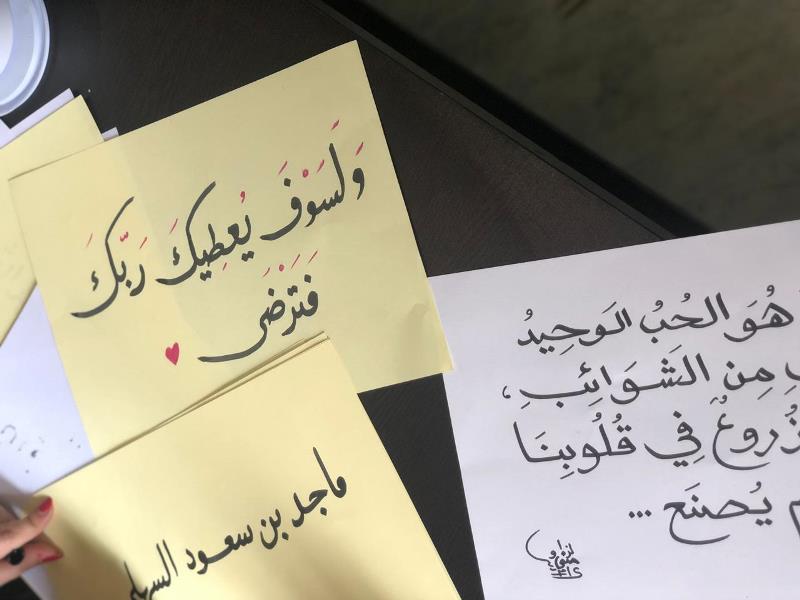 وَلَسَوْفَ يُعْطِيكَ رَبُّكَ
فَتَرْضَى
ماجد بن سعود
هُوَ الحُبُ الوَحِيدُ
مِن الشَوَائِبِ،
فِي قُلُوبِنَا
يُصنَع ...